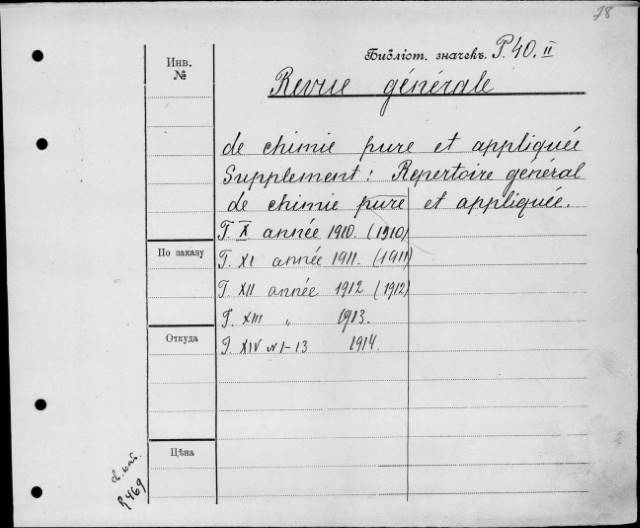 78
Библіот. значекъ P.40.II
Инв.
№
Revue générale
de chimie pure et appliquée
Supplement: Repertoire général
de chimie pure et appliquée.
T. X année 1910. (1910)
По заказу
T. XI année 1911. (1911)
T. XII année 1912 (1912)
T. XIII " 1913.
Откуда
T. XIV № 1-13 1914.
Цѣна
P469